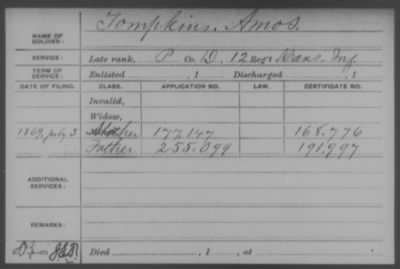 Tompkins, Amos.
NAME OF SOLDIER:
SERVICE: Late rank, P Co. D, 12 Reg't Kans. Inf.
TERM OF SERVICE: Enlisted , 1 Discharged , 1
DATE OF FILING. CLASS. APPLICATION NO. LAW. CERTIFICATE NO.
Invalid,
Widow,
1869, July 3 Mother 177.147 168.776
Father 255.099 191.997
ADDITIONAL SERVICES:
REMARKS:
Died , 1 , at